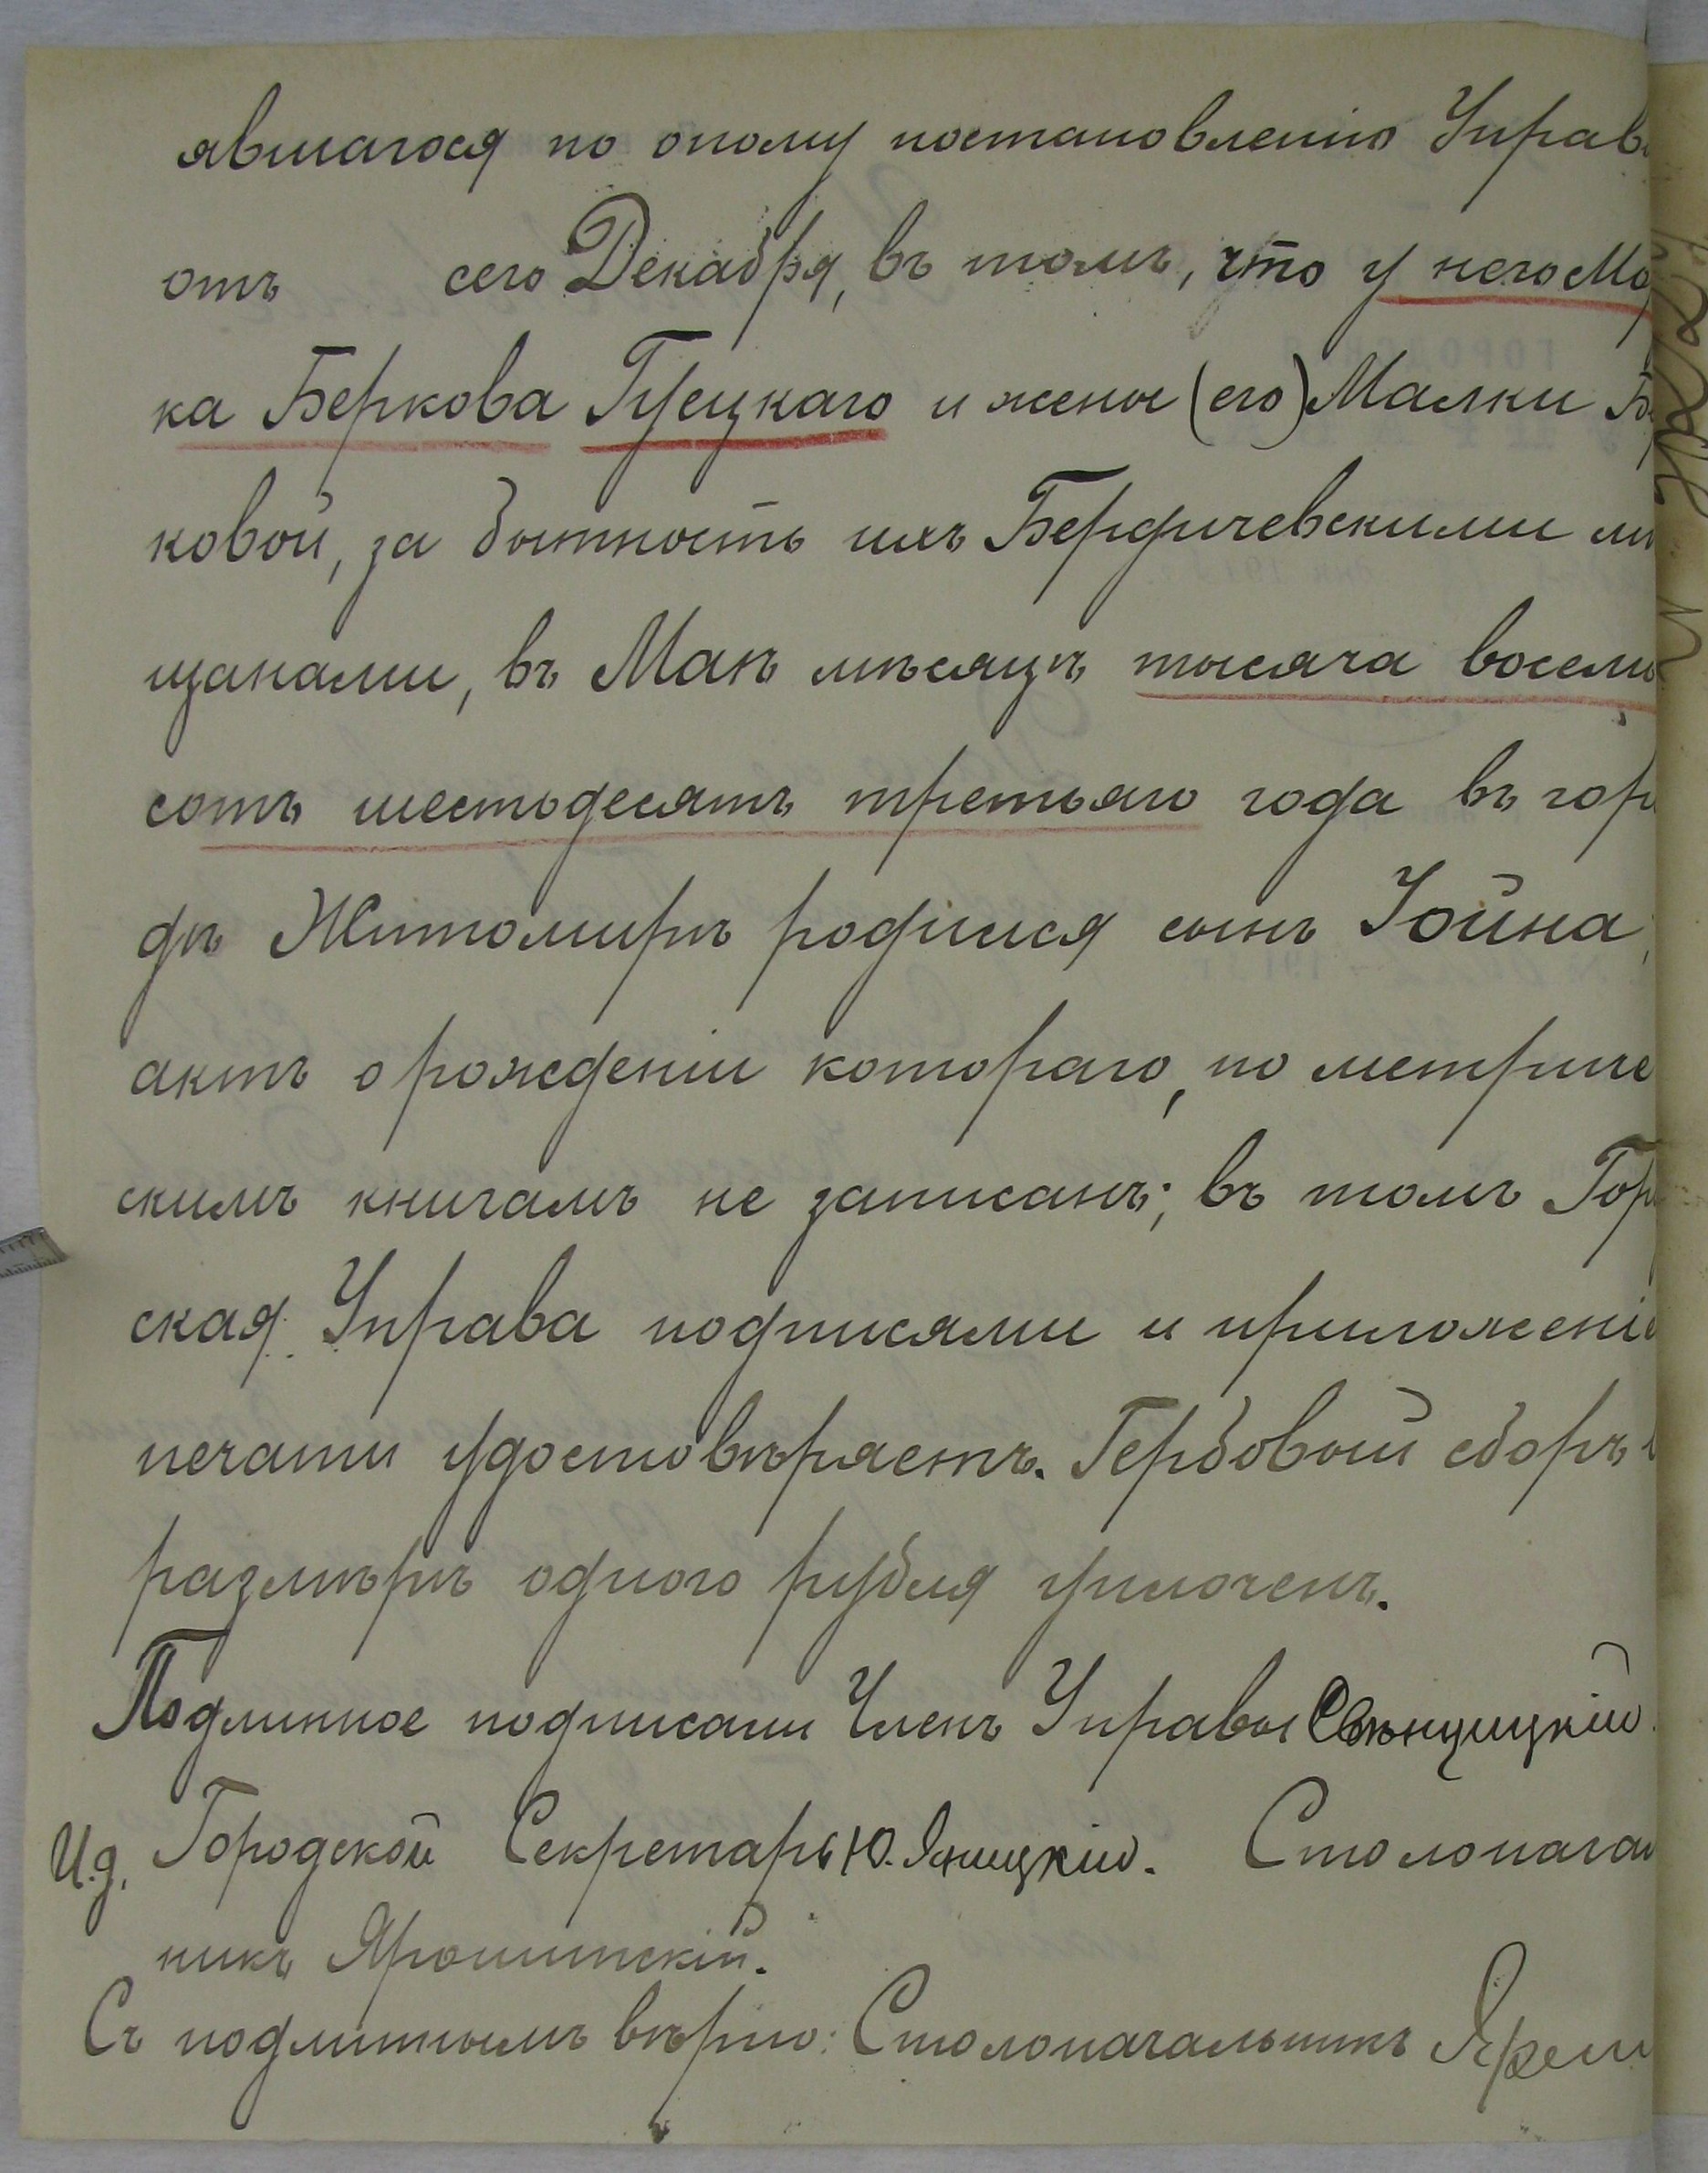 явшагося по оному постановленію Управ
отъ сего Декабря, въ томъ, что у него Мо
ка Беркова Гуецкаго и жены (его) Малки Б
ковой, за бытность ихъ Бердичевскими мѣ
щанами, въ Маѣ мѣсяцѣ тысяча восемь
сотъ шестьдесятъ третьяго года въ горо
дѣ Житомирѣ родился сынъ Іойна,
актъ о рожденіи котораго, по метриче
скимъ книгамъ не записанъ; въ томъ Гор
ская Управа подписями и приложеніе
печати удостовѣряетъ. Гербовый сборъ
размѣрѣ одного рубля уплоченъ.
Подлинное подписали Членъ Управы Свѣнцицкій.
И.д. Городской Секретарь Ю. Яницкій. Столоначаль
никъ Ярошинскій.
Съ подлиннымъ вѣрно: Столоначальникъ